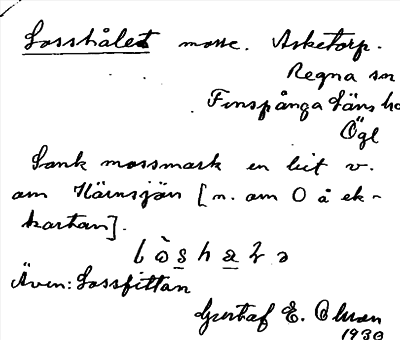 Losshålet mosse. Asketorp.
Regna sn
Finspånga Läns hd
Ögl
Sank mossmark en bit v.
om Härnsjön [n. om O å ek-
kartan].
Även: Lossfittan
Gustaf E. Olsson
1930